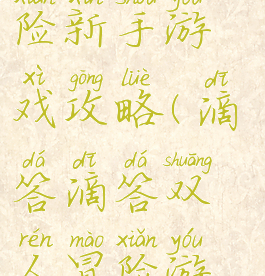 xiǎn xīn shǒu yóu
险新手游
xì gōng lüè dī
戏攻略(滴
dá dī dá shuāng
答滴答双
rén mào xiǎn yóu
人冒险游